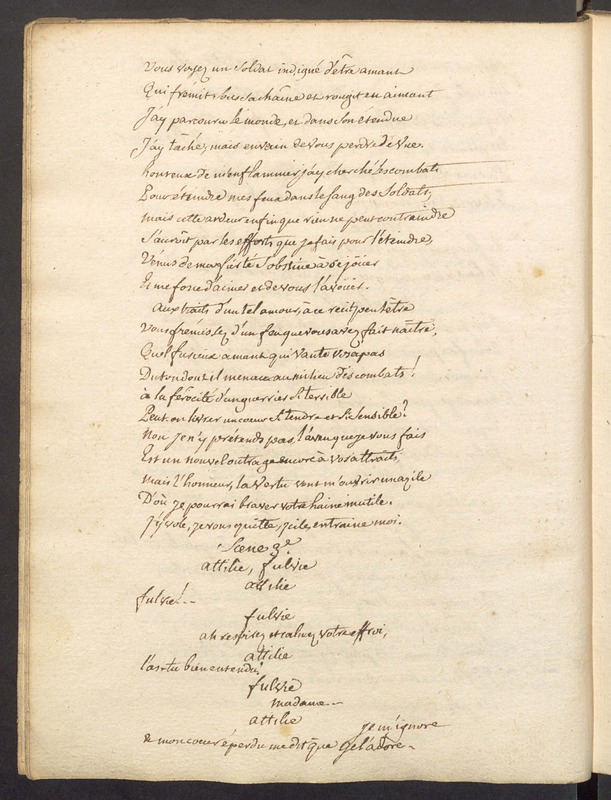 Vous voyez un Soldat indigné d'être amant
Qui frémit sous sa chaîne et rougit en aimant
J'ay parcouru le monde, et dans son étendue
J'ay tâché, mais envain de vous perdre de vue.
honteux de m'enflammer j'ay cherché les combats
Pour éteindre mes feux dans le sang des Soldats,
mais cette ardeur enfin que rien ne peut contraindre
S'accroît par les efforts que je fais pour l'éteindre,
Vénus de Mars s'obstine à se jouer
Et me force d'aimer et de vous l'avouer.
Aux traits d'un tel amour, à ce récit peut être
Vous frémissez d'un feu que vous avez fait naître,
Quel furieux amant qui vante vos apas
Du ton dont il menace au milieu des combats!
à la férocité d'un guerrier si terrible
Peut on livrer un coeur si tendre et si sensible?
Non je n'y prétends pas, l'aveu que je vous fais
Est un nouvel outrage encore à vos attraits,
mais l'honneur, la Vertu vont m'ouvrir un azile
D'où je pourrai braver votre haine inutile.
J'y vole, je vous quitte, Icile, entraine moi.
Scene 3e.
attilie, fulvie
attilie
fulvie!--
fulvie
ah respirez et calmez votre effroi,
attilie
l'as tu bien entendu?
fulvie
madame--
attilie
je m'ignore
& mon coeur éperdu me dit que je l'adore--